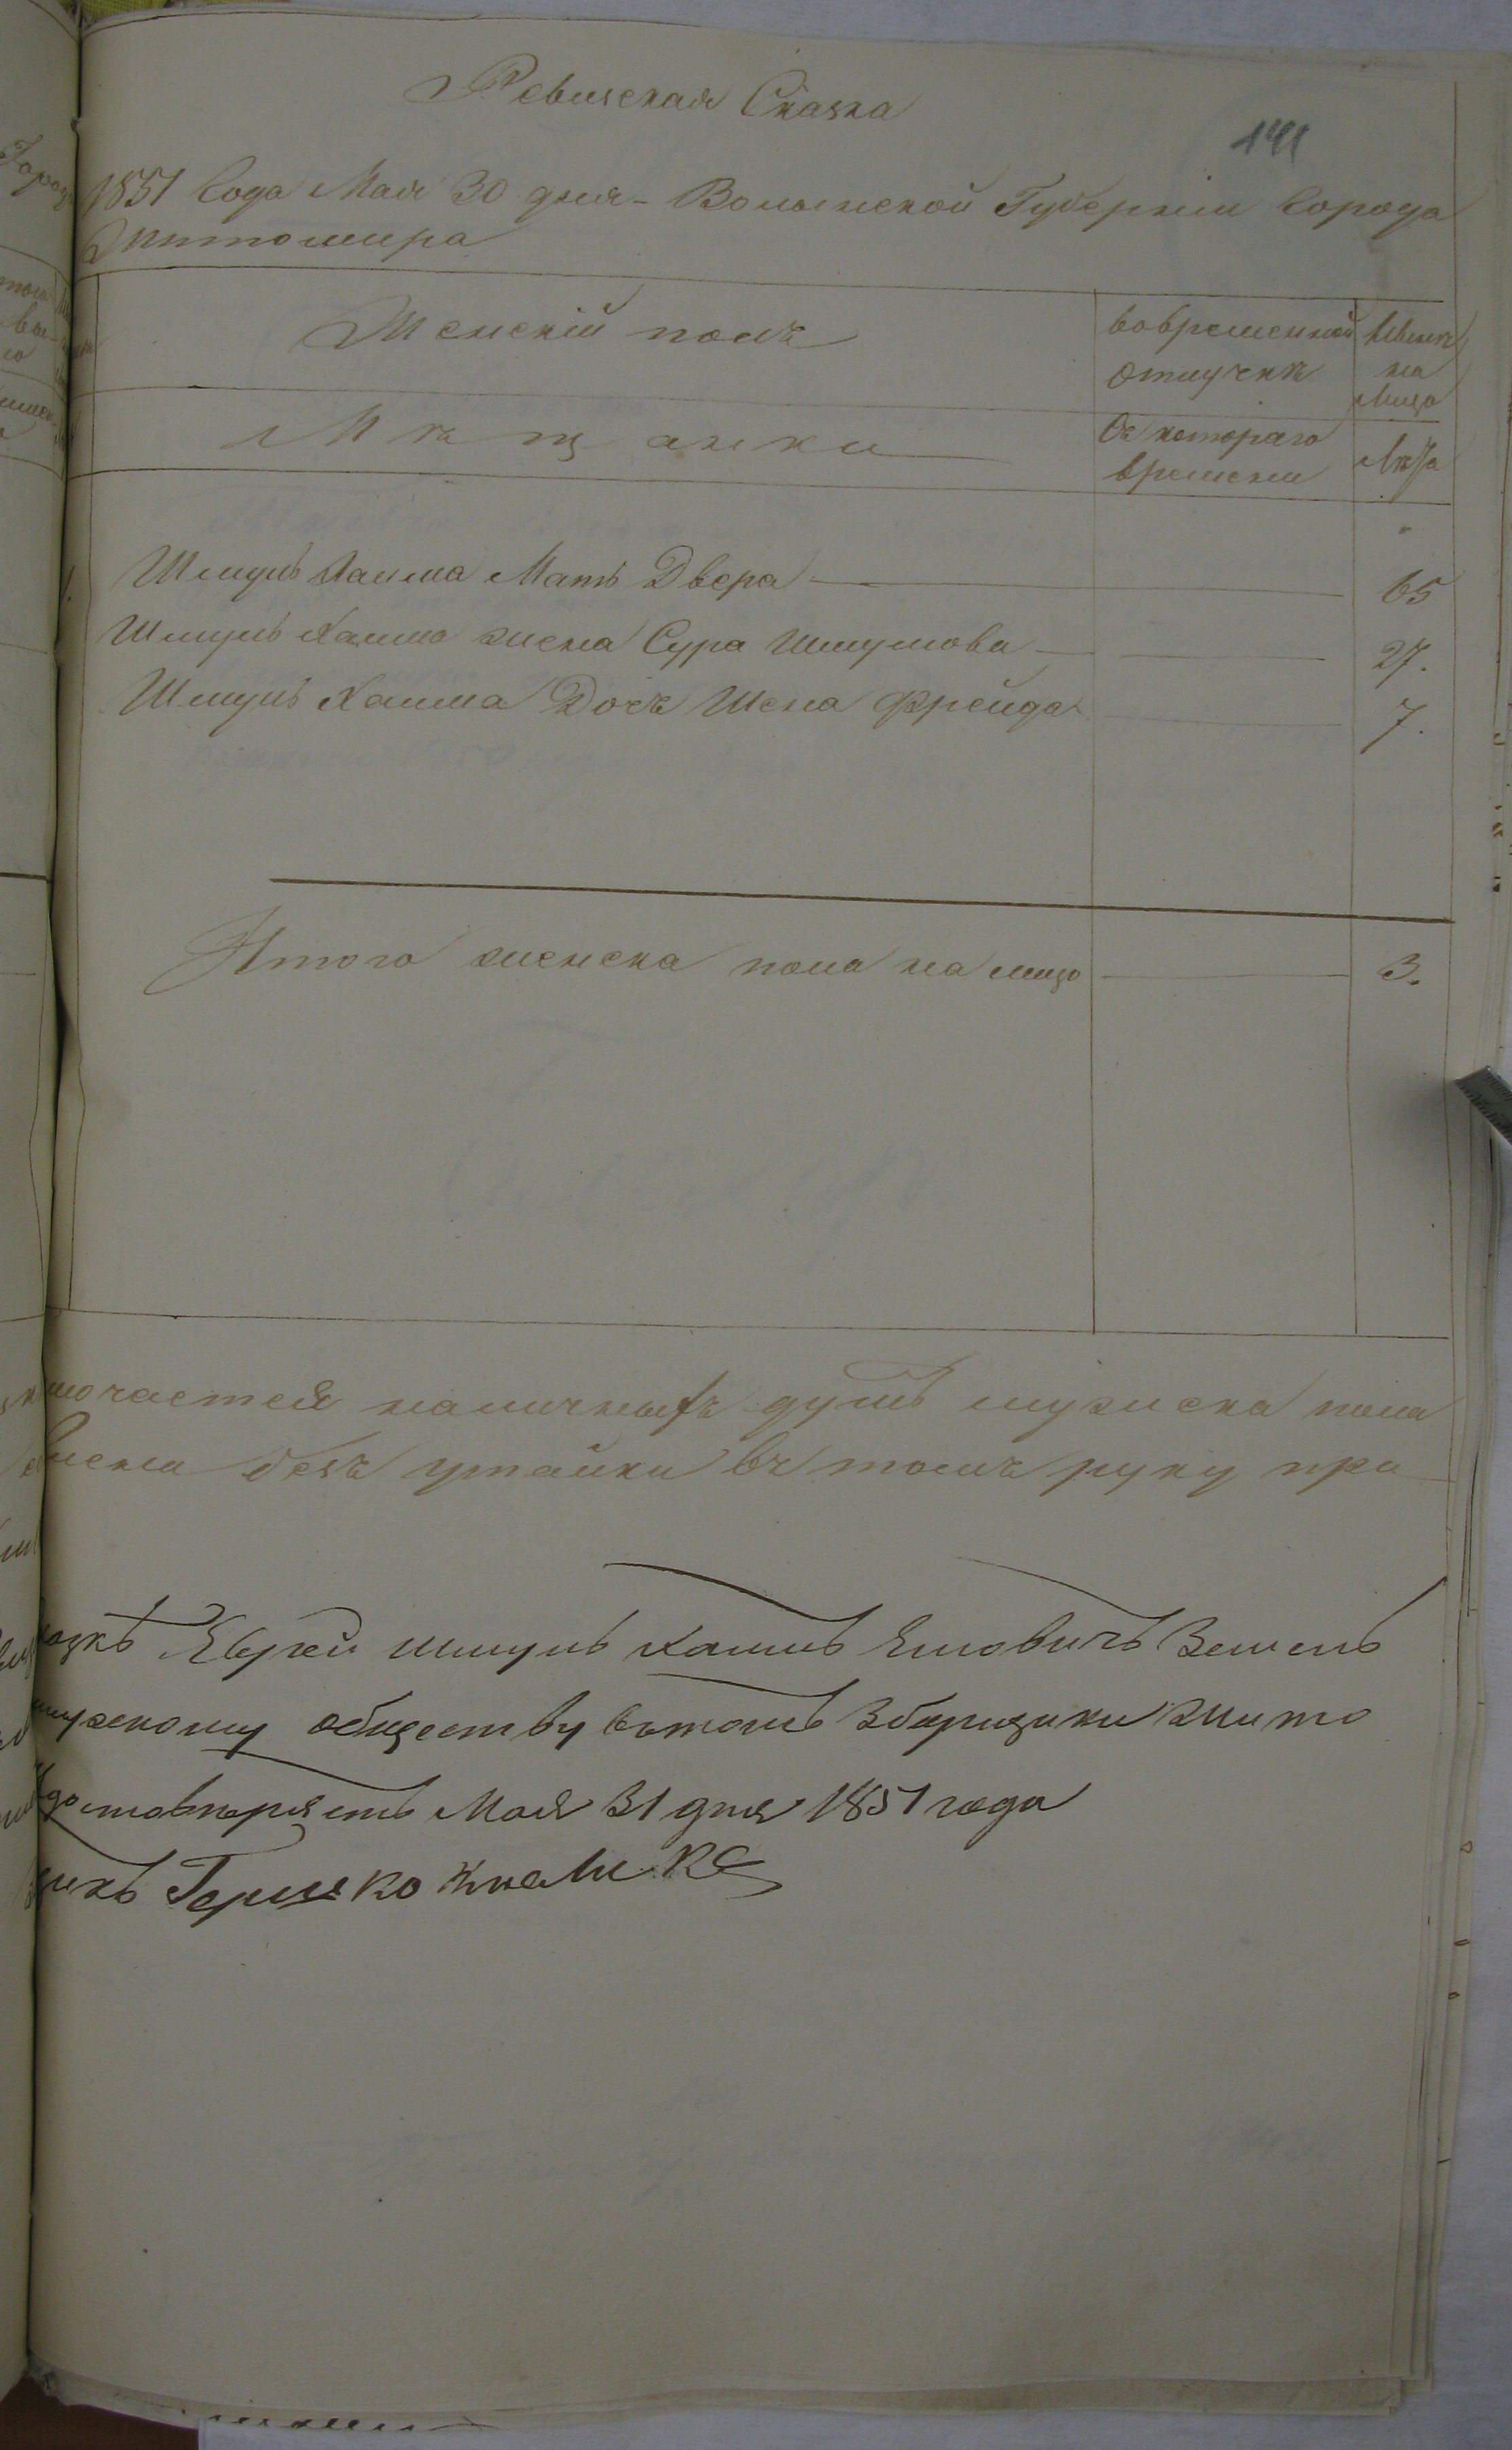 Ревизская Сказка
141
1851 Года Мая 30 дня - Волынской Губернiи Города
Житомира
Женскiй полъ
Во временной отлучкѣ
Нынѣ на лицо
Мѣщанки
Съ котораго времени
Лѣта
1.
Шмуль Хаима Мать Двера 65
Шмуль Хаима жена Сура Шмулова 27.
Шмуль Хаима Дочь Шена Фрейда 7.
Итого женска пола на лицо 3.
ключается наличныхъ душъ мужеска пола
безъ утайки въ томъ руку при
Еврей Шмуль Хаимъ
обществу въ томъ Зборщики Жито
Мая 31 дня 1851 года
Гершко